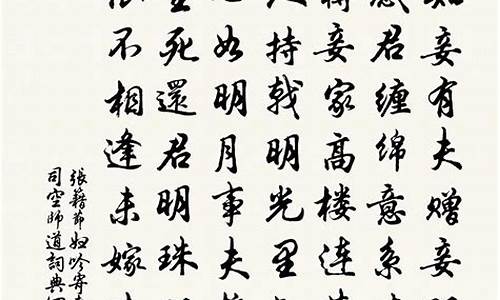 知妾有夫贈妾
感君纏綿意系
妾家高楼連
人持戟明光里
如明月事夫
死還君明珠
不相逢未嫁
張籍節妇吟寄東
司空師道詞典